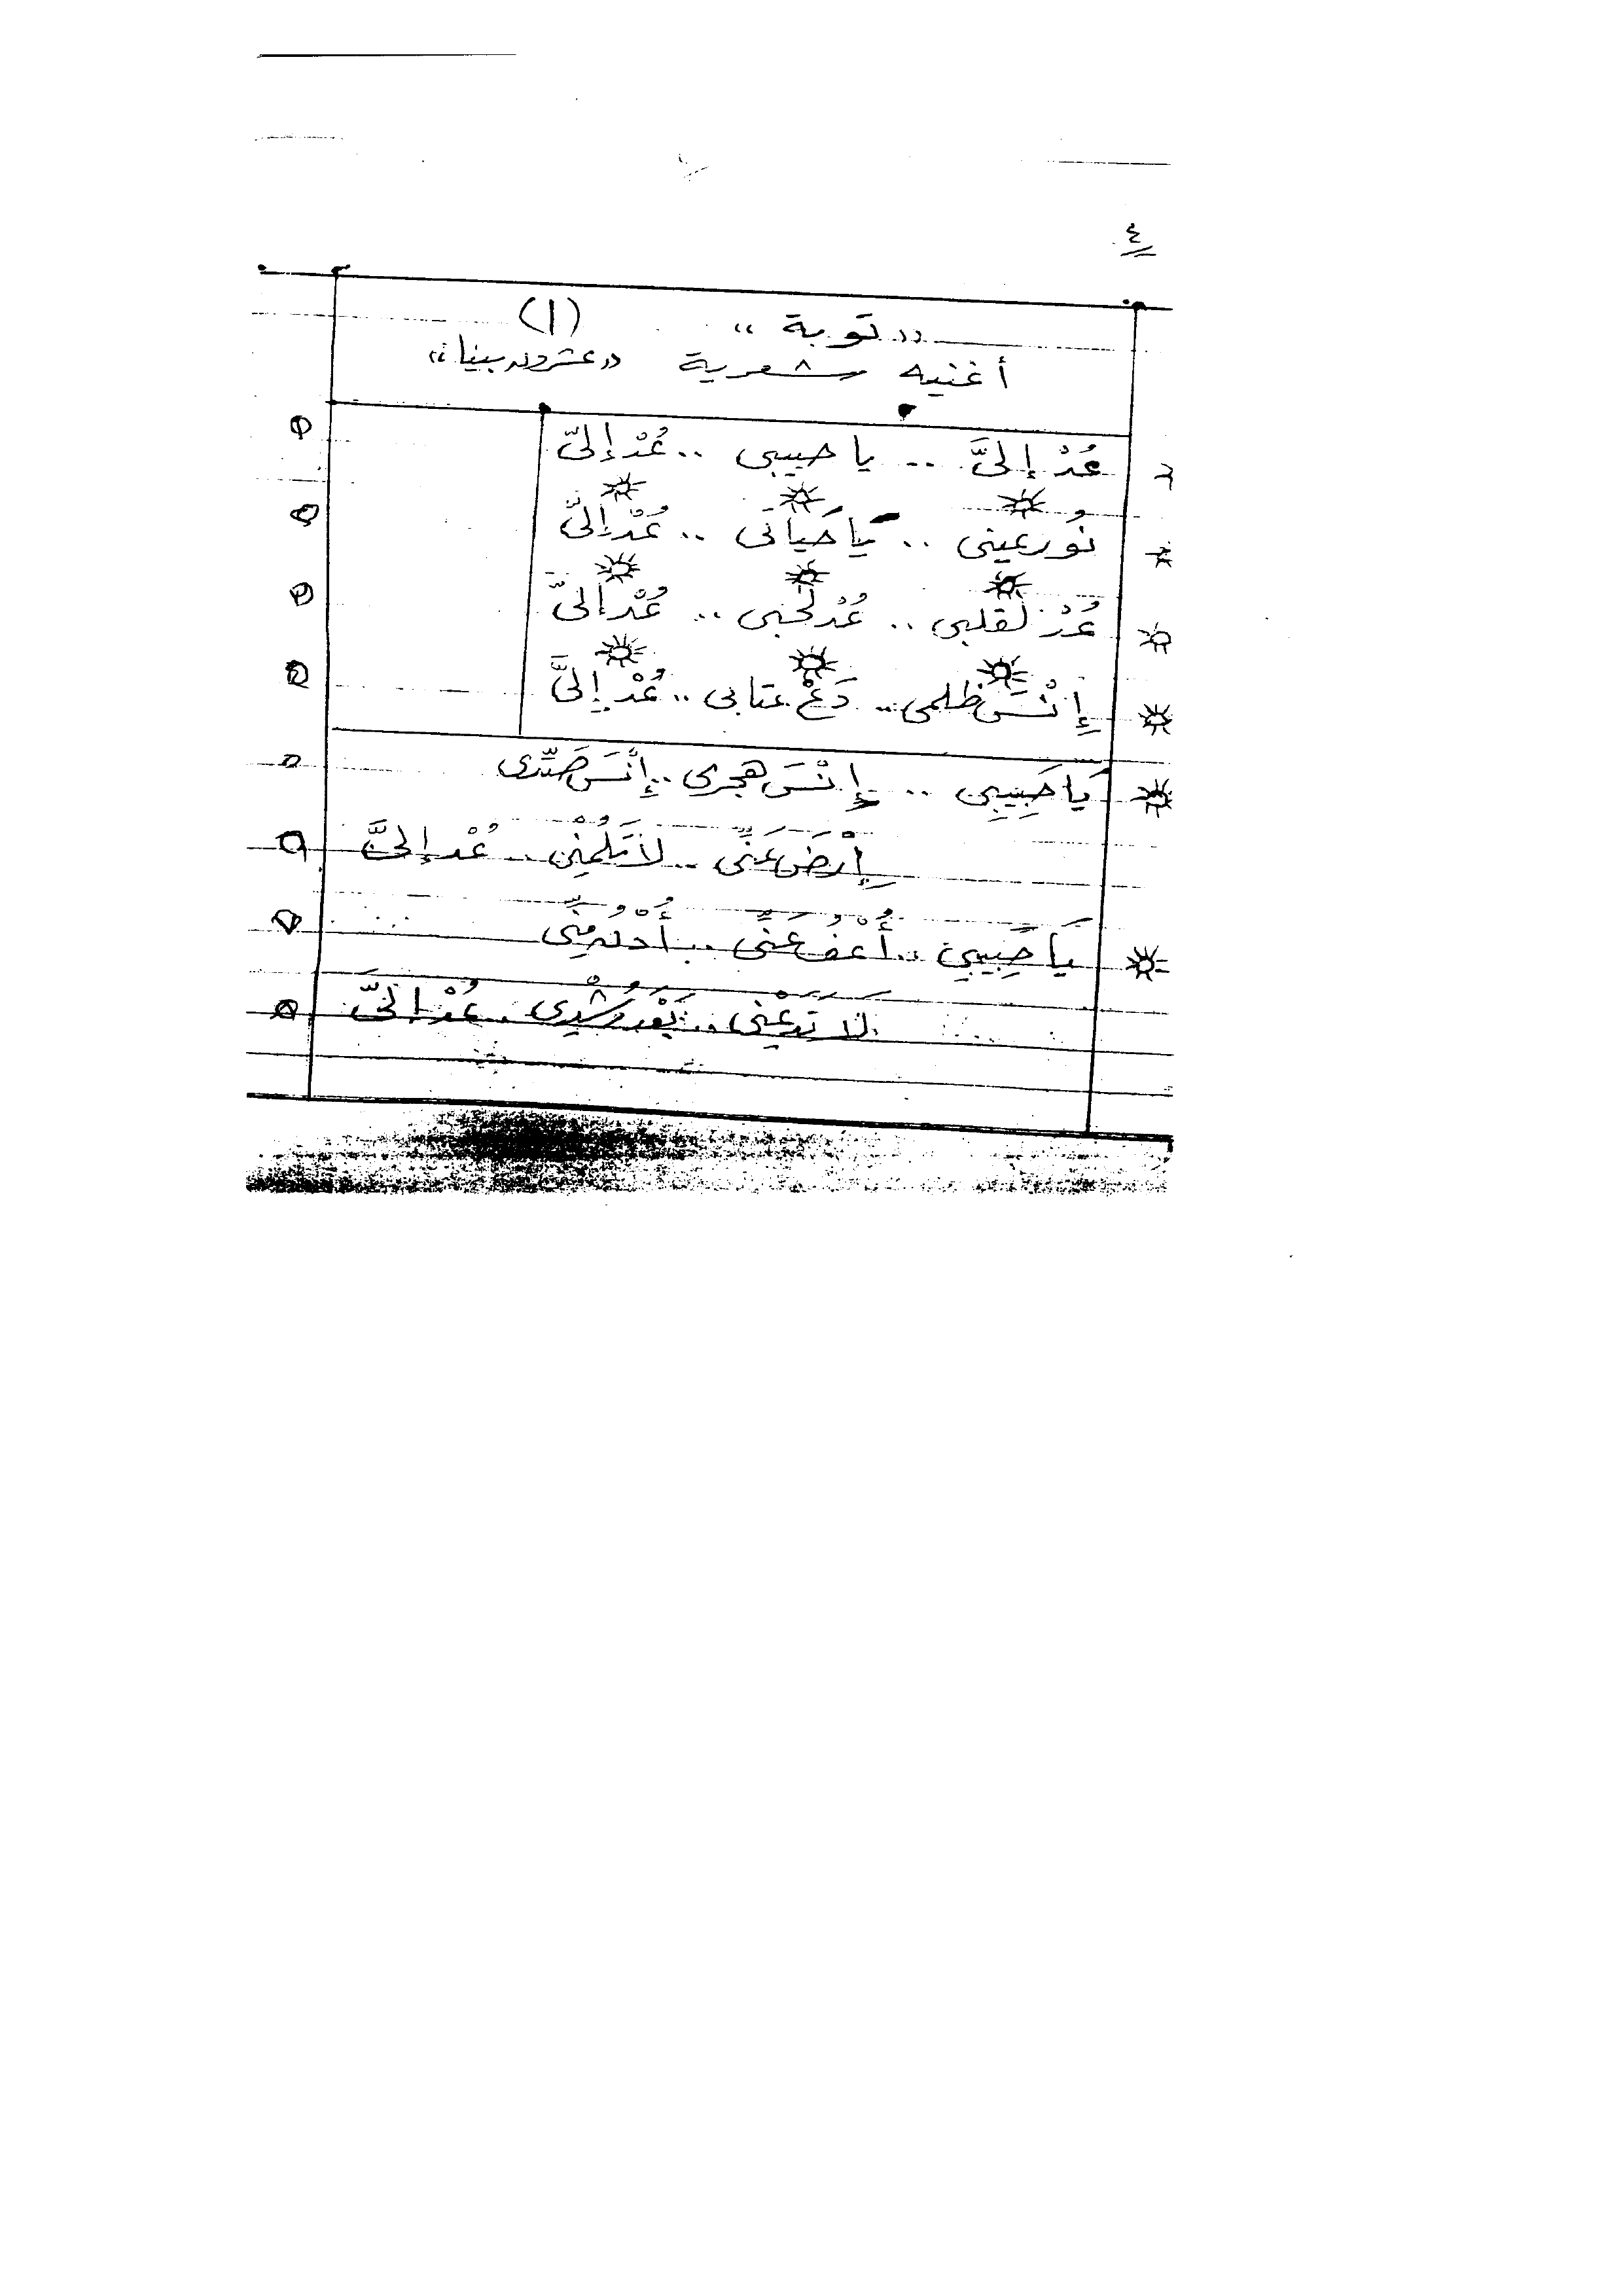 ٤
« توبة » (١)
أغنيه شعرية « عشرون بيتا »
عُدْ إلىَّ .. يا حبيبى .. عُدْ إلىّ
نُور عينى .. يَا حَياتى .. عُدْ إلىّ
عُدْ لقلبى .. عُدْ لحُبى .. عُدْ إلىّ
إِنْسَ ظلمى .. دَعْ عتابى .. عُدْ إِلىَّ
يَا حَبِيبِى .. إِنْسَ هجرى .. إِنْسَ صَدّى
إِرْضَ عَنِّى .. لاَ تَلُمْنِى .. عُدْ إلىَّ
يَا حَبِيبِى .. أُعْفُ عَنِّى .. أُدْنُ مِنِّى
لاَ تَدَعْنِى .. بَعْدَ رُشْدِى .. عُدْ إلىَّ